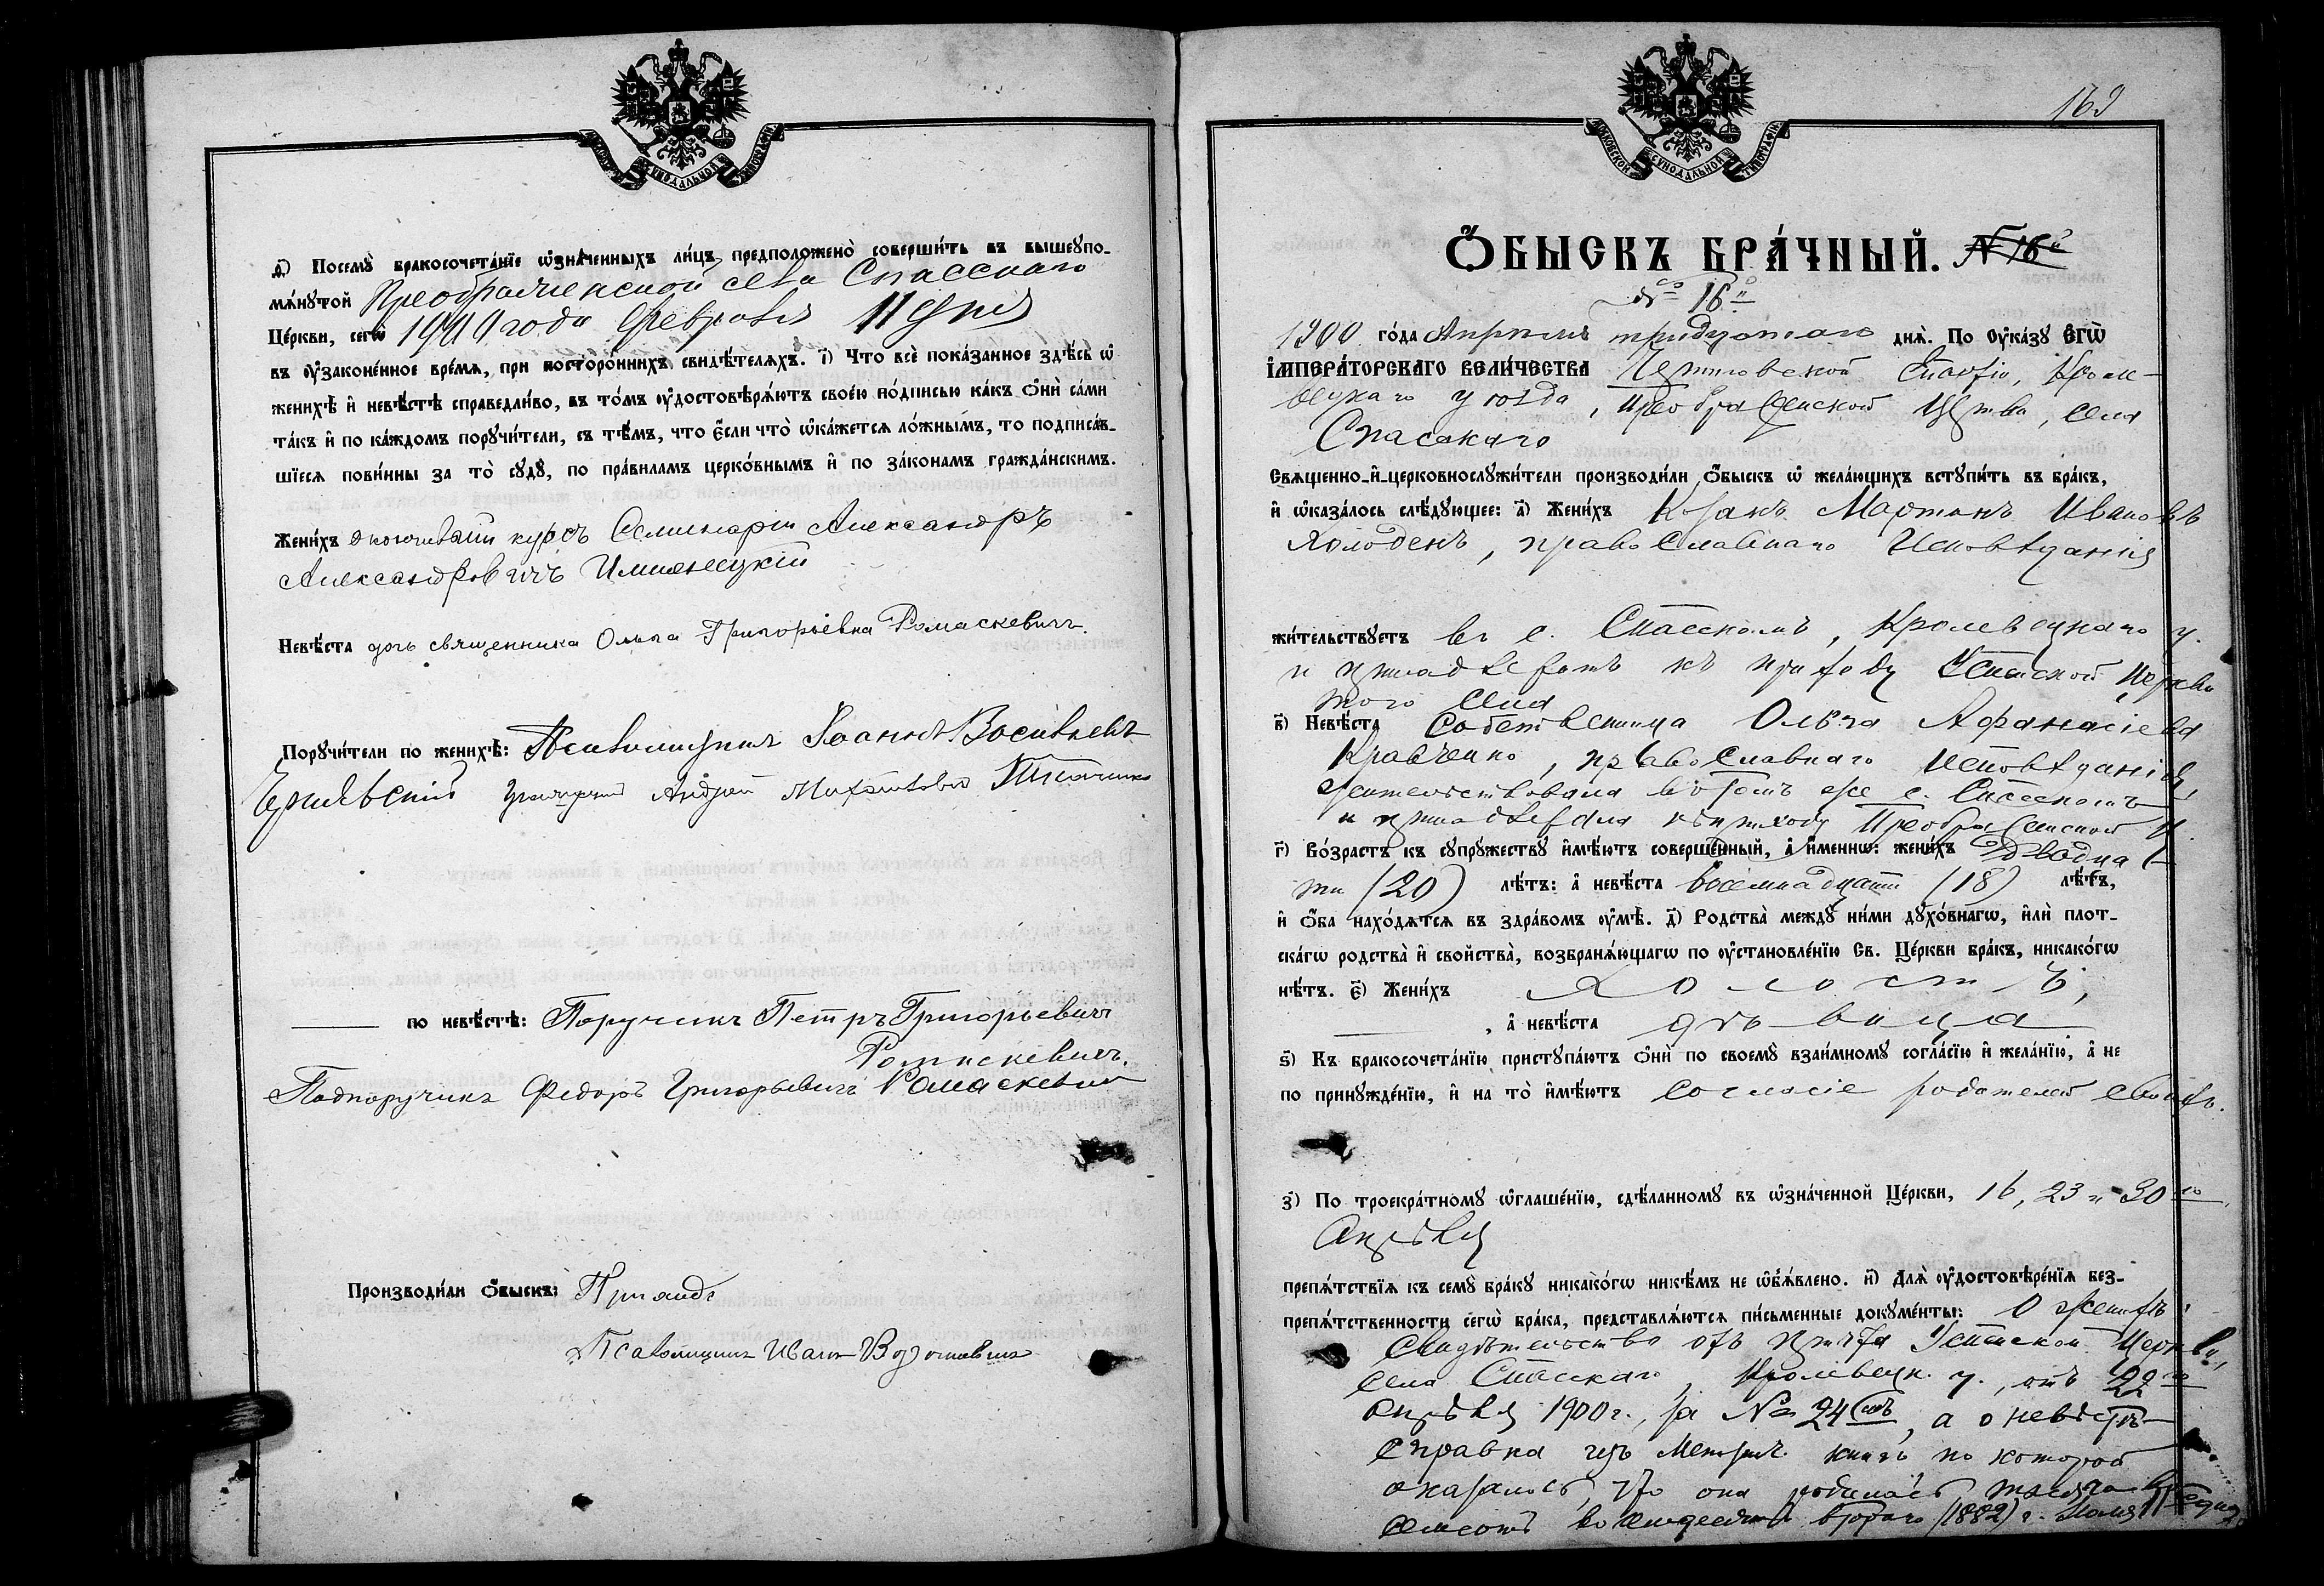 МОСКОВСКОЙ СѴНОДАЛЬНОЙ ТИПОГРАФІИ
д҃) Посемꙋ̀ бракосочета́нїе ѡ҆зна́ченныхъ ли́цъ предположено̀ соверши́ть въ вышеꙋпо-
мѧ́нꙋтой Преображенской села Спасскаго
Це́ркви, сегѡ̀ 1900 года Февраля 11 дня
въ ᲂу҆законе́нное вре́мѧ, при посторо́ннихъ свидѣ́телѧхъ. і҃) Что всѐ пока́занное здѣ́сь ѡ҆
женихѣ̀ и҆ невѣ́стѣ справедли́во, въ то́мъ ᲂу҆достовѣрѧ́ютъ свое́ю по́дписью ка́къ ѻ҆нѝ са́ми
та́къ и҆ по ка́ждомъ порꙋчи́тели, съ тѣ́мъ, что є҆́сли что̀ ѡ҆ка́жетсѧ ло́жнымъ, то подписа́в-
шїесѧ пови́нны за то̀ сꙋдꙋ̀, по пра́виламъ церко́внымъ и҆ по зако́намъ гражда́нскимъ.
Жени́хъ окончивший курсъ Семинаріи Александръ
Александровичъ Имшенецкій
Невѣ́ста дочь священника Ольга Григорьевна Ромаскевичъ.
Порꙋчи́тели по женихѣ̀: Псаломщикъ Іоаннъ Васильевъ
Андрей Михайловъ
по невѣ́стѣ: Поручикъ Петръ Григорьевичъ
Ромаскевичъ.
Подпоручикъ Федоръ Григорьевичъ Ромаскевичъ
Производи́ли ѻ҆́быскъ:
Псаломщикъ Иванъ
МОСКОВСКОЙ СѴНОДАЛЬНОЙ ТИПОГРАФІИ
169
Ѻ҆́БЫСКЪ БРА́ЧНЫЙ. № 16й
№ 16й
1900 го́да Апрѣля тридцатаго днѧ̀. По ᲂу҆ка́зꙋ Є҆ГѠ̀
І҆МПЕРА́ТОРСКАГО ВЕЛИ́ЧЕСТВА Черниговской Епархіи, Кроле-
вецкаго уѣзда, Преображенской Церкви, села
Спасскаго
Свѧщенно-и҆-церковнослꙋжи́тели производи́ли ѻ҆́быскъ ѡ҆ жела́ющихъ встꙋпи́ть въ бра́къ,
и҆ ѡ҆каза́лось слѣ́дꙋющее: а҃) Жени́хъ Козакъ Мартинъ Ивановъ
Холоденъ, православнаго Исповѣданія
жи́тельствꙋетъ въ с. Спасскомъ, Кролевецкаго у.
и принадлежитъ къ приходу Успенской Церкви
того села
в҃) Невѣ́ста Собственница Ольга Афанасіева
Кравченко, православнаго исповѣданія,
жительствовала въ томъ же с. Спасскомъ
и принадлежала къ приходу Преображенской ц.
г҃) Во́зрастъ къ сꙋпрꙋ́жествꙋ и҆мѣ́ютъ соверше́нный, а҆ и҆́меннѡ: жени́хъ двадца-
ти (20) лѣ́тъ: а҆ невѣ́ста восемнадцати (18) лѣ́тъ,
и҆ ѻ҆́ба нахо́дѧтсѧ въ здра́вомъ ᲂу҆мѣ̀. д҃) Родства̀ междꙋ̀ ни́ми дꙋхо́внагѡ, и҆лѝ плот-
ска́гѡ родства̀ и҆ свойства̀, возбранѧ́ющагѡ по ᲂу҆становле́нїю Св. Це́ркви бра́къ, никако́гѡ
нѣ́тъ. є҃) Жени́хъ холостъ,
, а҆ невѣ́ста дѣвица
ѕ҃) Къ бракосочета́нїю пристꙋпа́ютъ ѻ҆нѝ по своемꙋ̀ взаи́мномꙋ согла́сїю и҆ жела́нїю, а҆ не
по принꙋжде́нїю, и҆ на то̀ и҆мѣ́ютъ согласіе родителей своихъ.
з҃) По троекра́тномꙋ ѡ҆глаше́нїю, сдѣ́ланномꙋ въ ѡ҆зна́ченной Це́ркви, 16, 23 и 30го
Апрѣля
препѧ́тствїѧ къ семꙋ̀ бра́кꙋ никако́гѡ никѣ́мъ не ѡ҆б̾ѧ́влено. и҃) Длѧ̀ ᲂу҆достовѣре́нїѧ без-
препѧ́тственности сегѡ̀ бра́ка, представлѧ́ютсѧ пи́сьменные докꙋме́нты: О женихѣ:
Свидѣтельство отъ причта Успенской Церкви,
села Спасскаго, Кролевецк. у., отъ 22го
апрѣля 1900 г., за № 24мъ, а о невѣстѣ
справка изъ Метрич. книгъ по которой
оказалось, что она родилась тысяча
семсотъ восемдесятъ втораго (1882) г. Іюля 11